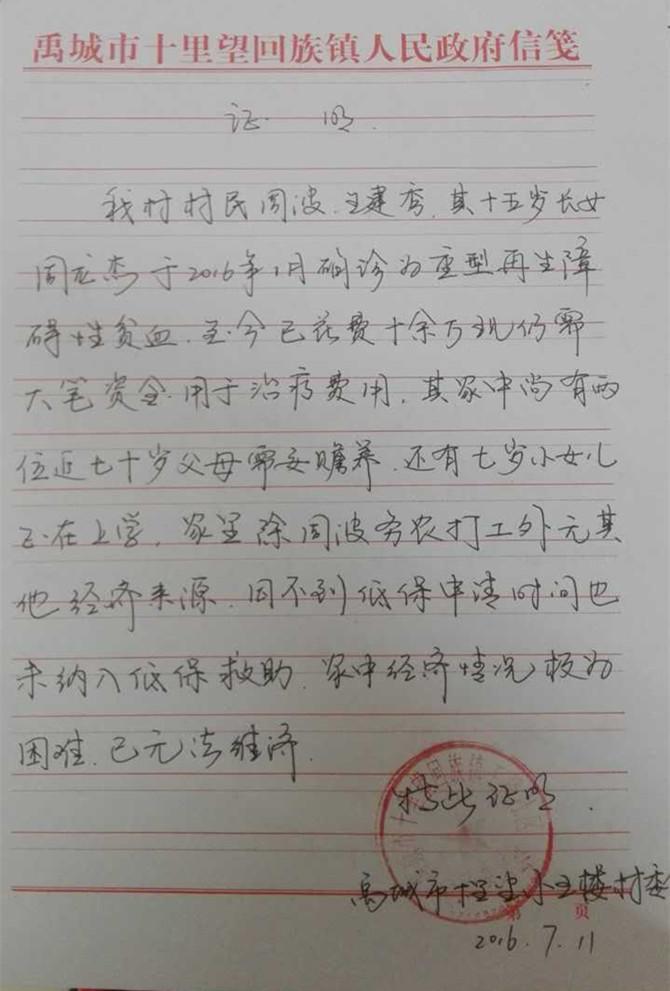 禹城市十里望回族镇人民政府信笺
证 明
我村村民周波、王建秀,其十五岁长女
周龙杰于2016年1月确诊为重型再生障
碍性贫血,至今已花费十余万现仍需
大笔资金用于治疗费用,其家中尚有两
位近七十岁父母需要赡养,还有七岁小女儿
正在上学,家里除周波务农打工外无其
他经济来源,因不到低保申请时间也
未纳入低保救助,家中经济情况极为
困难,已无法维济
特此证明.
禹城市十里望小王楼村委
第 页
2016.7.11